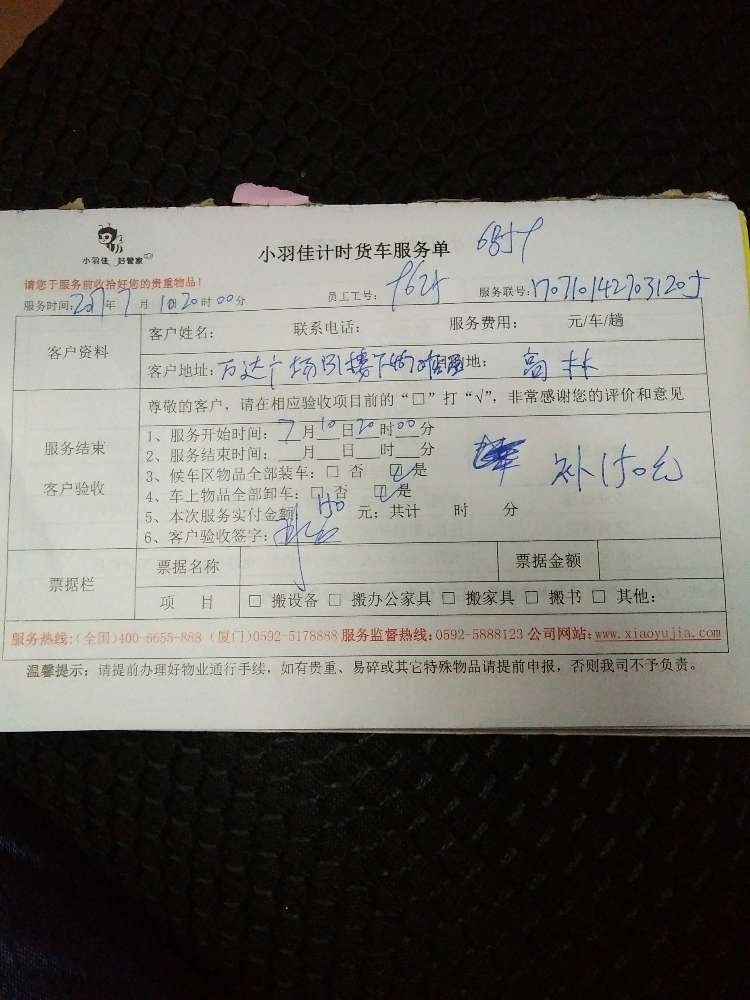 小羽佳 好管家
小羽佳计时货车服务单
请您于服务前收拾好您的贵重物品!
服务时间:2017年7月10 20时00分 员工工号: 服务联号:
客户资料 客户姓名: 联系电话: 服务费用: 元/车/趟
客户地址:万达广场 楼下 地: 高林
尊敬的客户,请在相应验收项目前的“□”打“√”,非常感谢您的评价和意见
服务结束 客户验收
1、服务开始时间:7月10日20时00分
2、服务结束时间:__月__日__时__分
3、候车区物品全部装车:□ 否 ☑是
4、车上物品全部卸车:□ 否 ☑是
补150元
5、本次服务实付金额:150元;共计 时 分
6、客户验收签字:
票据栏 票据名称 票据金额
项 目 □ 搬设备 □ 搬办公家具 □ 搬家具 □ 搬书 □ 其他:
服务热线:(全国)400-6655-888 (厦门)0592-5178888 服务监督热线:0592-5888123 公司网站:www.xiaoyujia.com
温馨提示:请提前办理好物业通行手续,如有贵重、易碎或其它特殊物品请提前申报,否则我司不予负责。